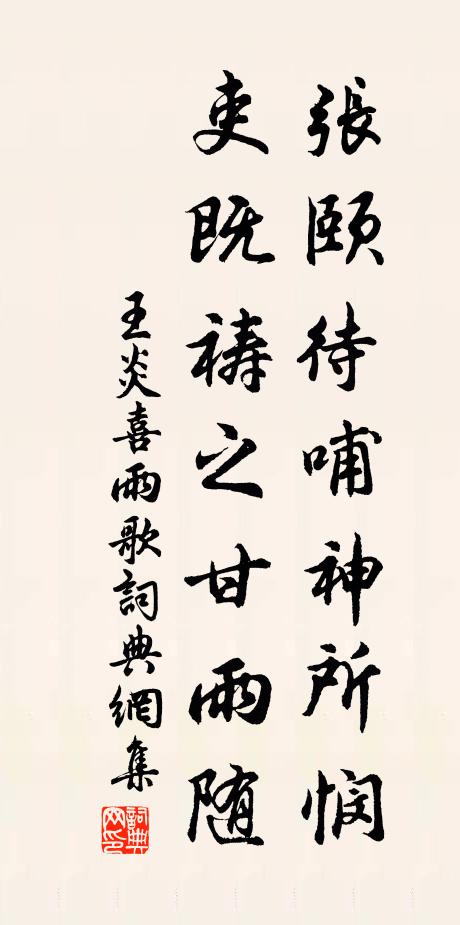 張頤待哺神所悯
吏既祷之甘雨随
王炎喜雨歌詞典網集
詞典网印